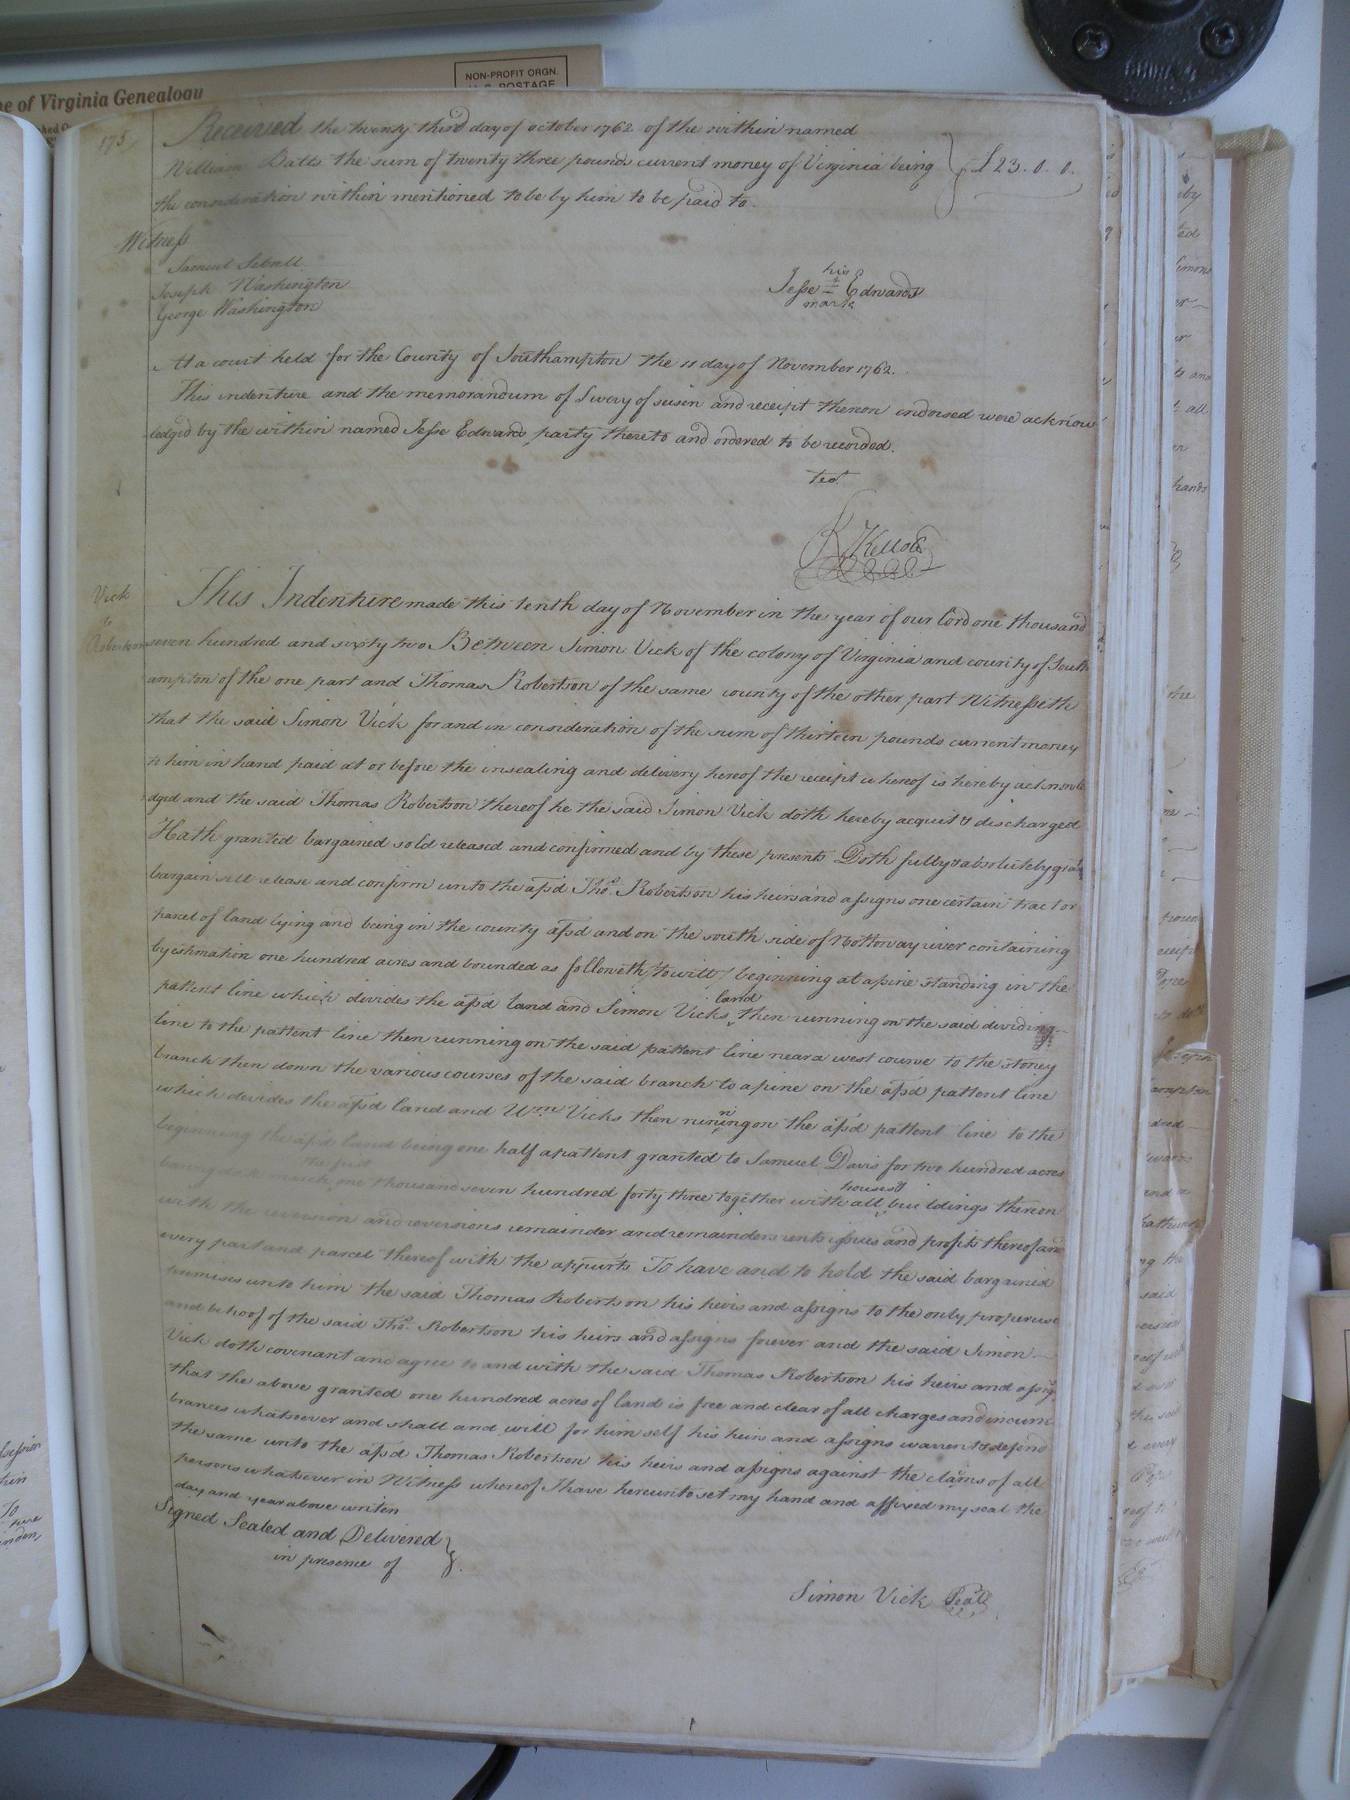 e of Virginia Genealogu
NON-PROFIT ORGN.
U.S. POSTAGE
175
Received the twenty third day of october 1762 of the within named
William Batts the sum of twenty three pounds current money of Virginia being
the consideration within mentioned to be by him to be paid to.
£23.0.0.
Witness
Samuel Sebrell
Joseph Washington
George Washington
his
Jesse Edwards
mark
At a court held for the County of Southampton the 11 day of November 1762.
This indenture and the memorandum of Livery of seisin and receipt thereon indorsed were acknow
ledged by the within named Jesse Edwards party thereto and ordered to be recorded.
Test
R Kello
Vick
to
Robertson
This Indenture made this tenth day of November in the year of our Lord one thousand
seven hundred and sixty two Between Simon Vick of the colony of Virginia and county of South
ampton of the one part and Thomas Robertson of the same county of the other part Witnesseth
that the said Simon Vick for and in consideration of the sum of thirteen pounds current money
to him in hand paid at or before the insealing and delivery hereof the receipt whereof is hereby acknowle
dged and the said Thomas Robertson thereof he the said Simon Vick doth hereby acquit & discharged
Hath granted bargained sold released and confirmed and by these presents Doth fully & absolutely grant
bargain sell release and confirm unto the afsd Thos. Robertson his heirs and assigns one certain tract or
parcel of land lying and being in the county afsd and on the south side of Nottoway river containing
by estimation one hundred acres and bounded as followeth /to witt/ beginning at a pine standing in the
pattent line which divides the afsd land and Simon Vicks land then running on the said dividing
line to the pattent line then running on the said pattent line near a west course to the stoney
branch then down the various courses of the said branch to a pine on the afsd pattent line
which divides the afsd land and Wm. Vicks then runing on the afsd pattent line to the
beginning the afsd land being one half a pattent granted to Samuel Davis for two hundred acres
baring date march the first one thousand seven hundred forty three together with all houses & buildings thereon
with the reversion and reversions remainder and remainders rents issues and profits thereof and
every part and parcel thereof with the appurts To have and to hold the said bargained
premises unto him the said Thomas Robertson his heirs and assigns to the only proper use
and behoof of the said Thos. Robertson his heirs and assigns forever and the said Simon
Vick doth covenant and agree to and with the said Thomas Robertson his heirs and assig
that the above granted one hundred acres of land is free and clear of all charges and incum
brances whatsoever and shall and will for him self his heirs and assigns warrent & defend
the same unto the afsd Thomas Robertson his heirs and assigns against the claims of all
persons whatsever in Witness whereof I have hereunto set my hand and affixed my seal the
day and year above writen
Signed Sealed and Delivered
in presence of
Simon Vick Seal